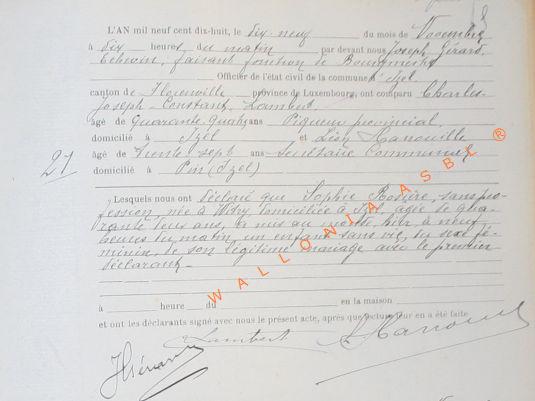 L'AN mil neuf cent dix-huit, le dix-neuf du mois de Novembre
à dix heures, du matin par devant nous Joseph Gérard,
Echevin, faisant fonction de Bourgmestre
Officier de l'état civil de la commune d'Izel
canton de Florenville province de Luxembourg, ont comparu Charles
Joseph Constant Lambert
âgé de Quarante quatre ans Piqueur provincial
domicilié à Izel et Léon Hanouille
21
âgé de Trente sept ans Secrétaire Communal
domicilié à Pin (Izel)
Lesquels nous ont déclaré que Sophie Rosière, sans pro-
fession née à domiciliée à Izel, âgée de qua-
rante deux ans, a mis au monde, hier, à neuf
heures du matin, un enfant sans vie, du sexe fé-
minin, de son légitime mariage avec le premier
déclarant.
à heure du en la maison
et ont les déclarants signé avec nous le présent acte, après que lecture leur en a été faite
Lambert
L Hanouille
JGérard
WALLONIA ASBL ®